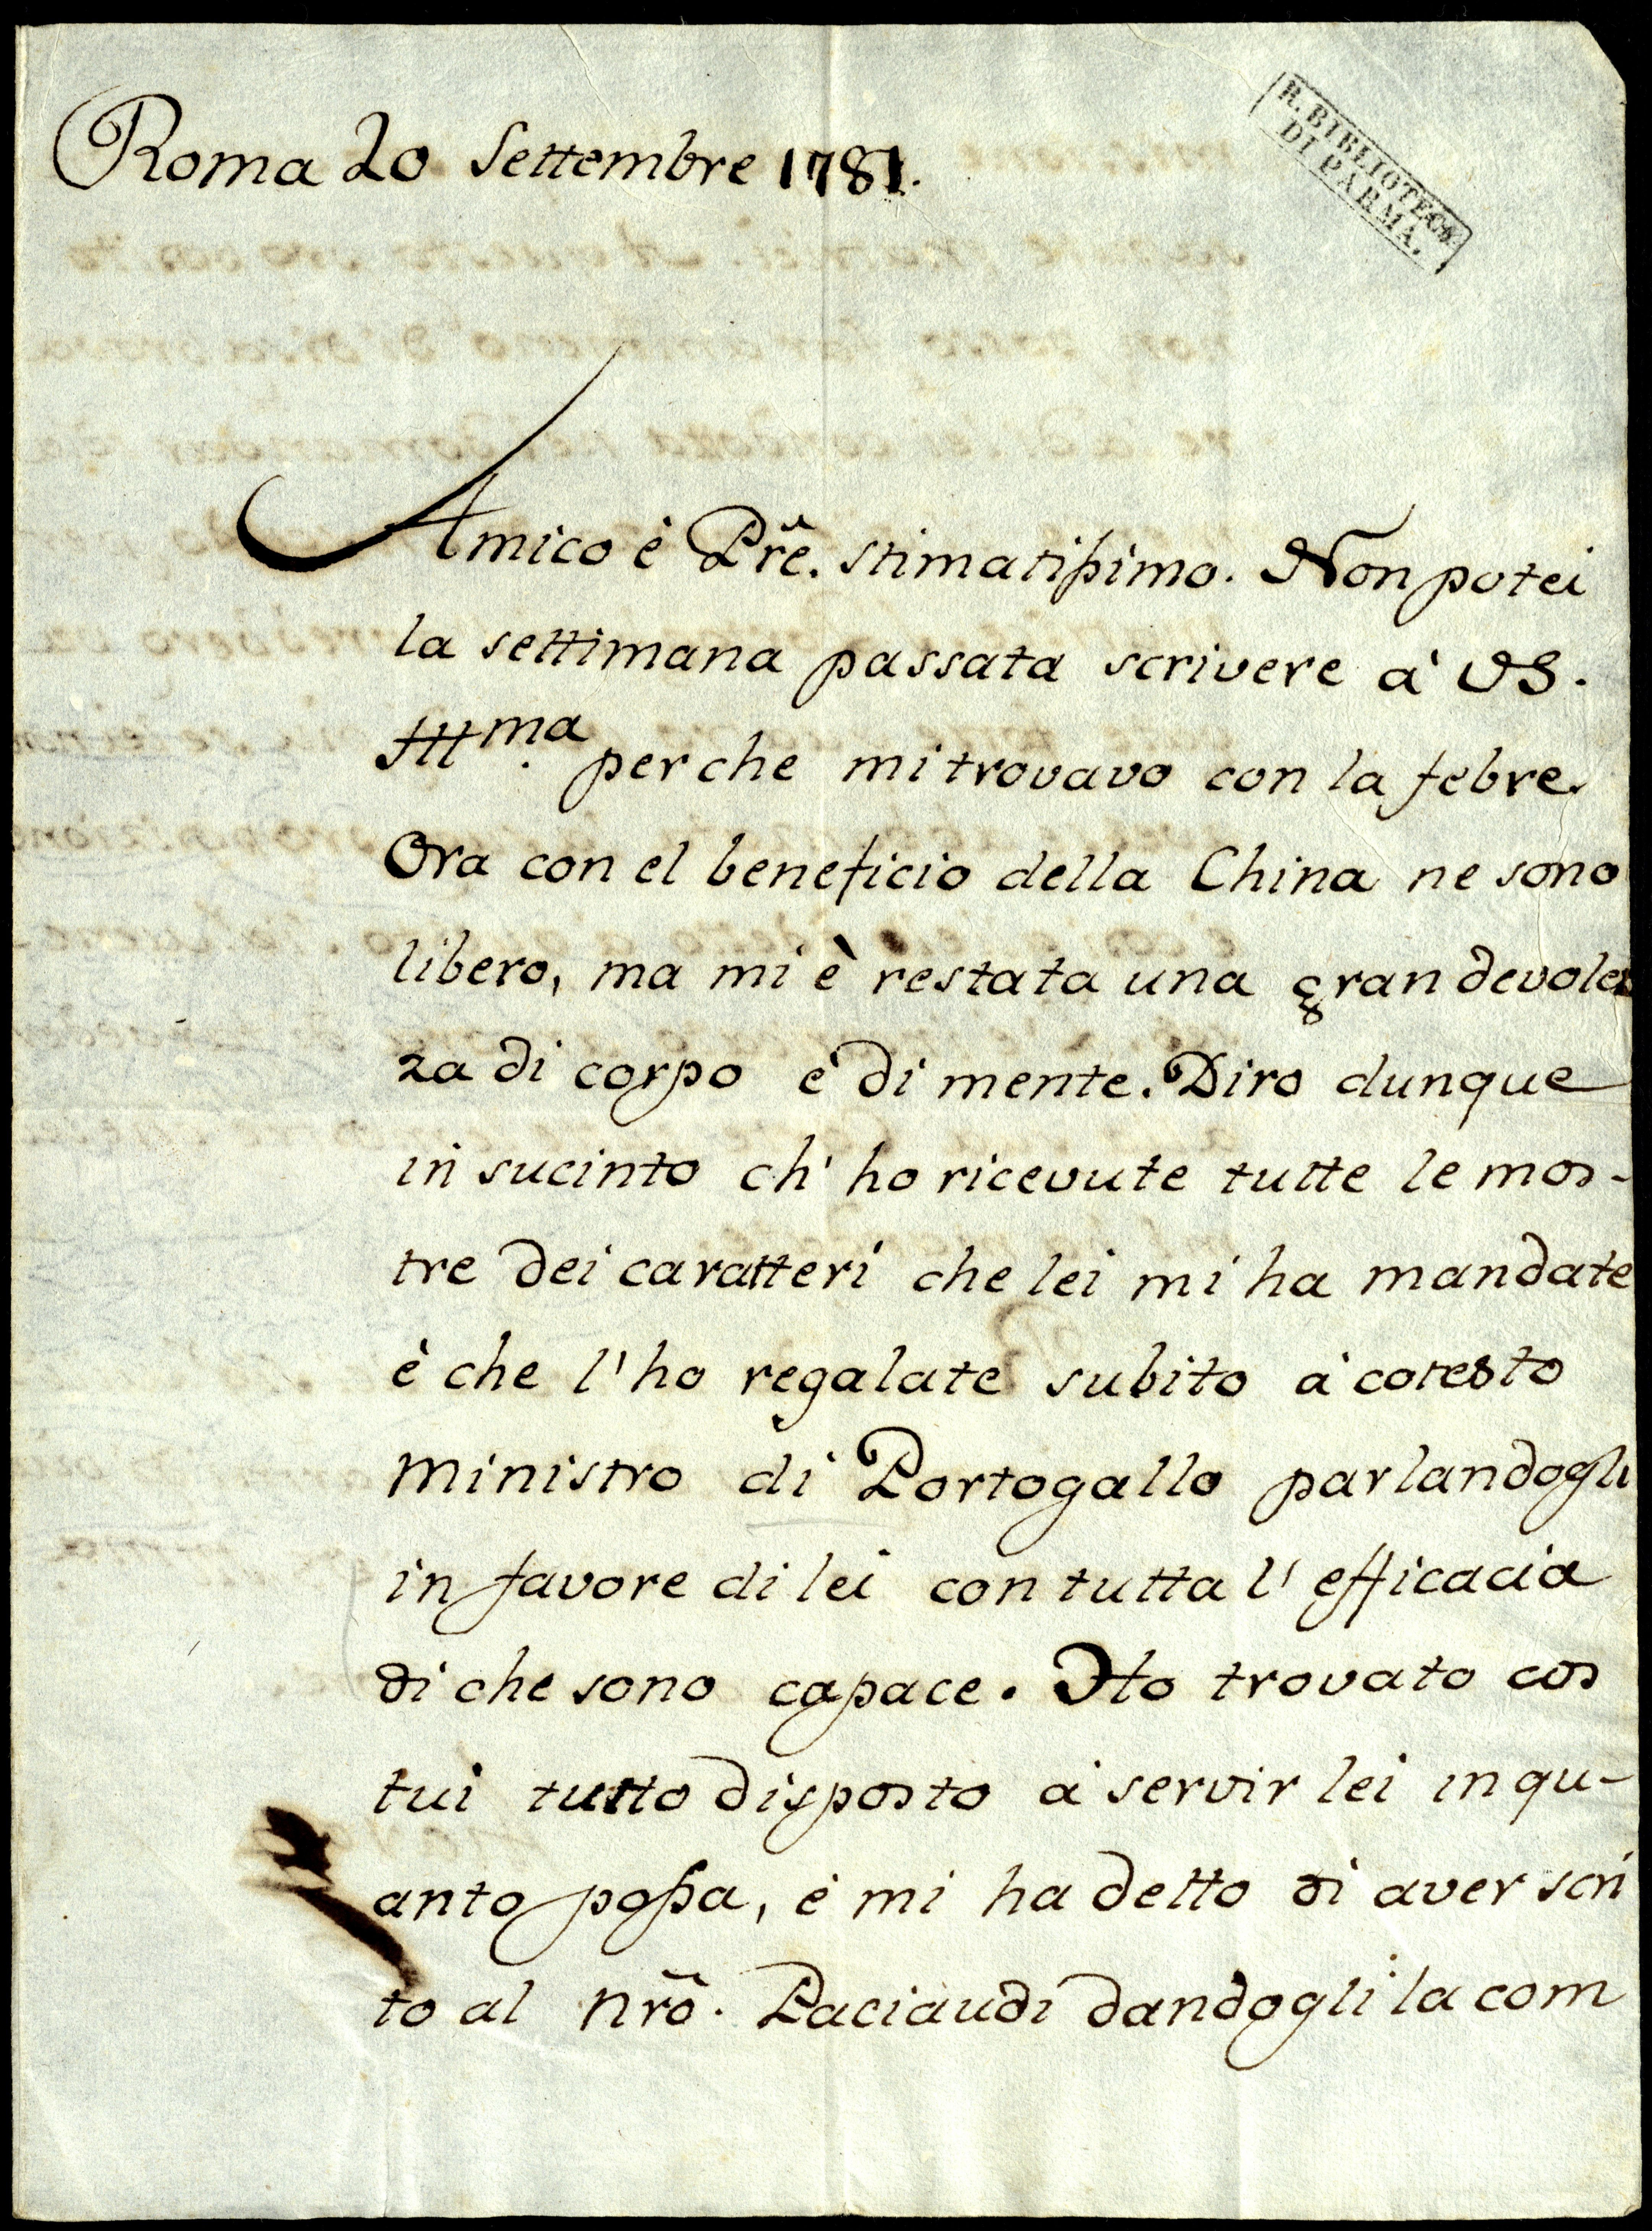 Roma 20 Settembre 1781.
R. BIBLIOTECA
DI PARMA.
Amico è Prẽ. stimatissimo. Non potei
la settimana passata scrivere à VS.
Illma. perche mi trovavo con la febre.
Ora con el beneficio della China ne sono
libero, ma mi è restata una gran devolez
za di corpo è di mente. Diro dunque
in sucinto ch' ho ricevute tutte le mos-
tre dei caratteri che lei mi ha mandate
è che l'ho regalate subito à cotesto
ministro di Portogallo parlandogli
in favore di lei con tutta l'efficacia
di che sono capace. Ho trovato cos
tui tutto disposto à servir lei in qu-
anto possa, è mi ha detto di aver scri
to al nrõ. Paciaudi dandogli la com